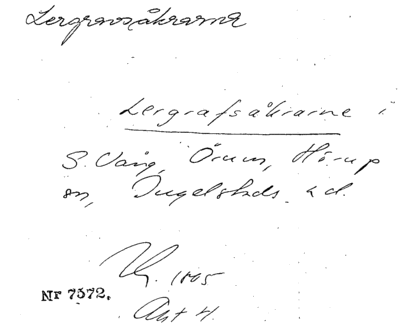 Lergravsåkrarna
Lergrafsåkrarne i
S. Vång, Örum, Hörup
sn, Ingelstads hd.
1805
Nr 7572.
Akt 4.